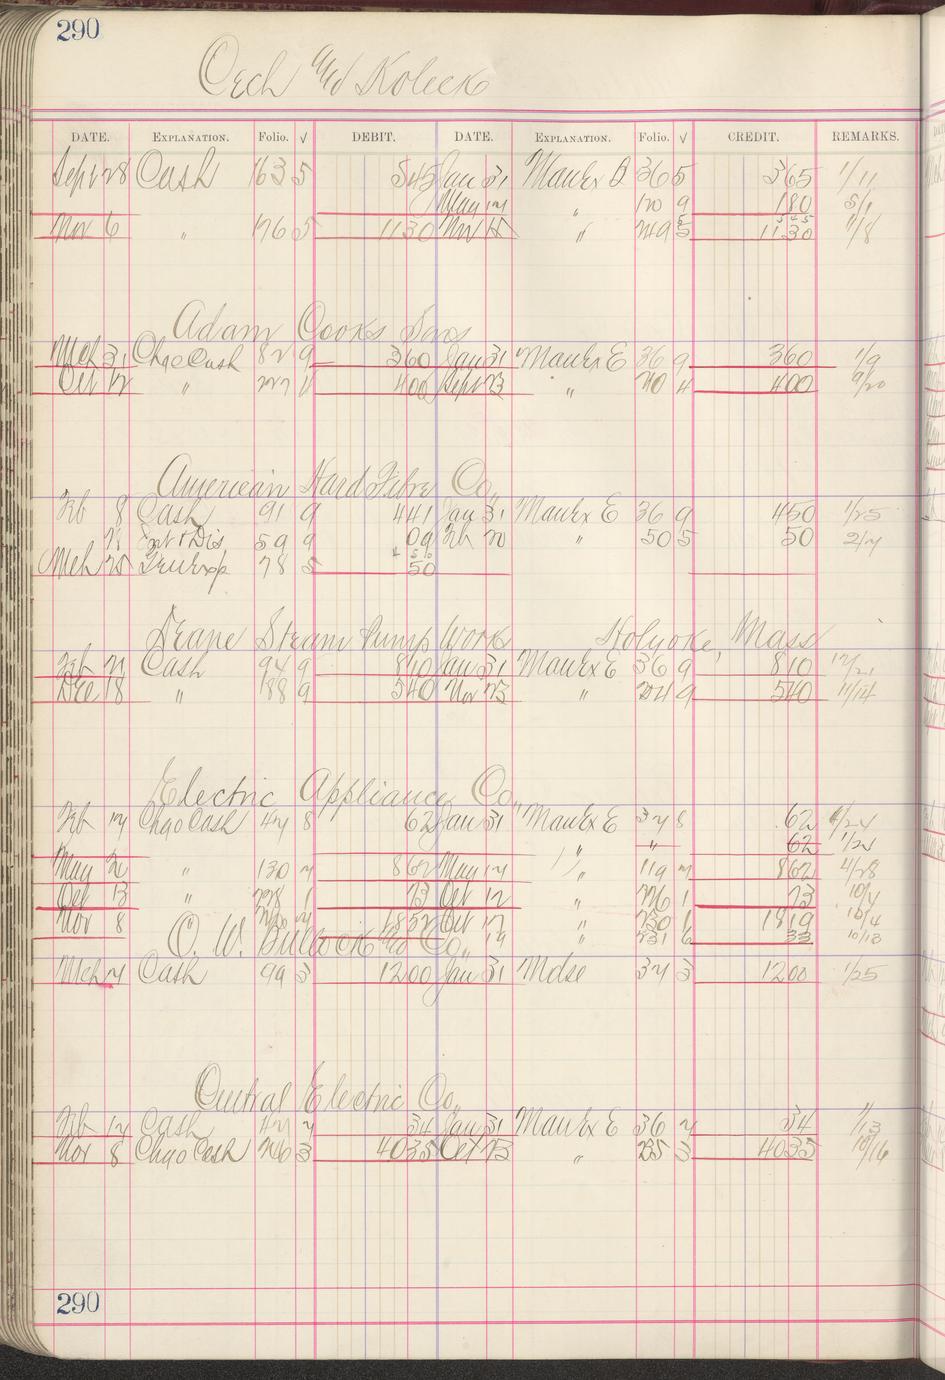 290
Cech and Koleck
DATE. EXPLANATION. Folio. √ DEBIT. DATE. EXPLANATION. Folio. √ CREDIT. REMARKS.
Sept 28 Cash 163 5 545 Jan 31 Man Ex B 36 5 365 1/11
May 14 " 120 9 180 5/1
545
Nov 6 " 176 5 1130 Nov " 249 5 1130 11/8
Adam Cooks Sons
Mch 31 Chgo Cash 82 9 360 Jan 31 Man Ex E 36 9 360 1/9
Oct 12 " 227 400 Sept 23 " 210 4 400 9/20
American Hard Fibre Co.
Feb 8 Cash 91 9 441 Jan 31 Man Ex E 36 9 450 1/25
Int & Dis 59 9 09 Feb 20 " 50 5 50 2/7
450
Mch 25 78 5 50
Deane Steam Pump Works Holyoke, Mass
Feb 21 Cash 94 9 810 Jan 31 Man Ex E 36 9 810 12/21
Dec 18 " 188 9 540 Nov 23 " 254 9 540 11/14
Electric Appliance Co.
Feb 14 Chgo Cash 47 8 62 Jan 31 Man Ex E 37 8 62 1/24
" " 62 1/24
May 2 " 130 7 862 May 14 " 119 7 862 4/28
Oct 13 " 228 1 73 Oct 12 " 226 1 73 10/4
Nov 8 1852 Oct 17 " 230 1 1819 10/4
O. W. Bullock and Co. 19 " 231 6 33 10/13
Mch 4 Cash 99 3 1200 Jan 31 Mdse 34 3 1200 1/25
Central Electric Co.
Feb 14 Cash 47 7 34 Jan 31 Man Ex E 36 7 34 1/13
Nov 8 Chgo Cash 246 3 4035 Oct 23 " 235 3 4035 10/16
290